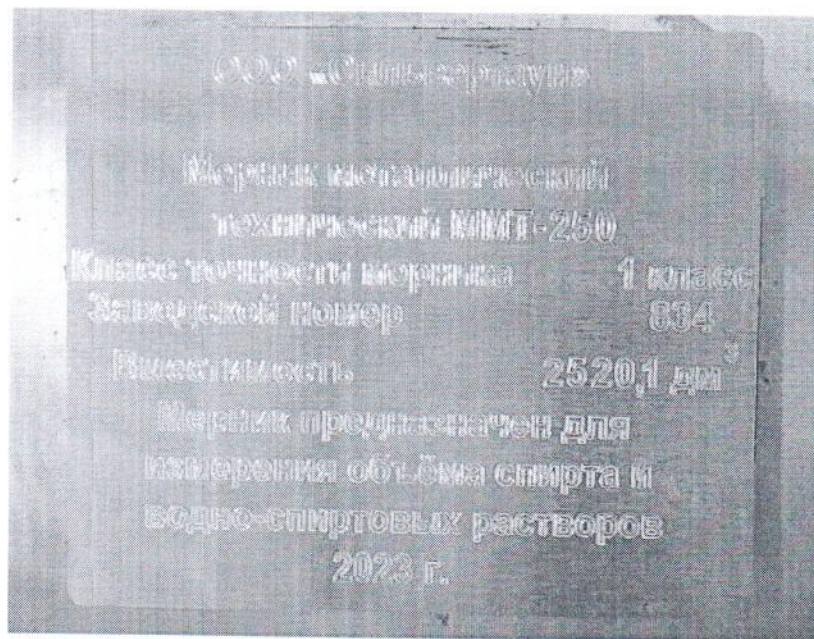 ООО «Сильвертаун»
Мерник металлический
технический ММТ-250
Класс точности мерника 1 класс
Заводской номер 834
Вместимость 2520,1 дм³
Мерник предназначен для
измерения объёма спирта и
водно-спиртовых растворов
2023 г.